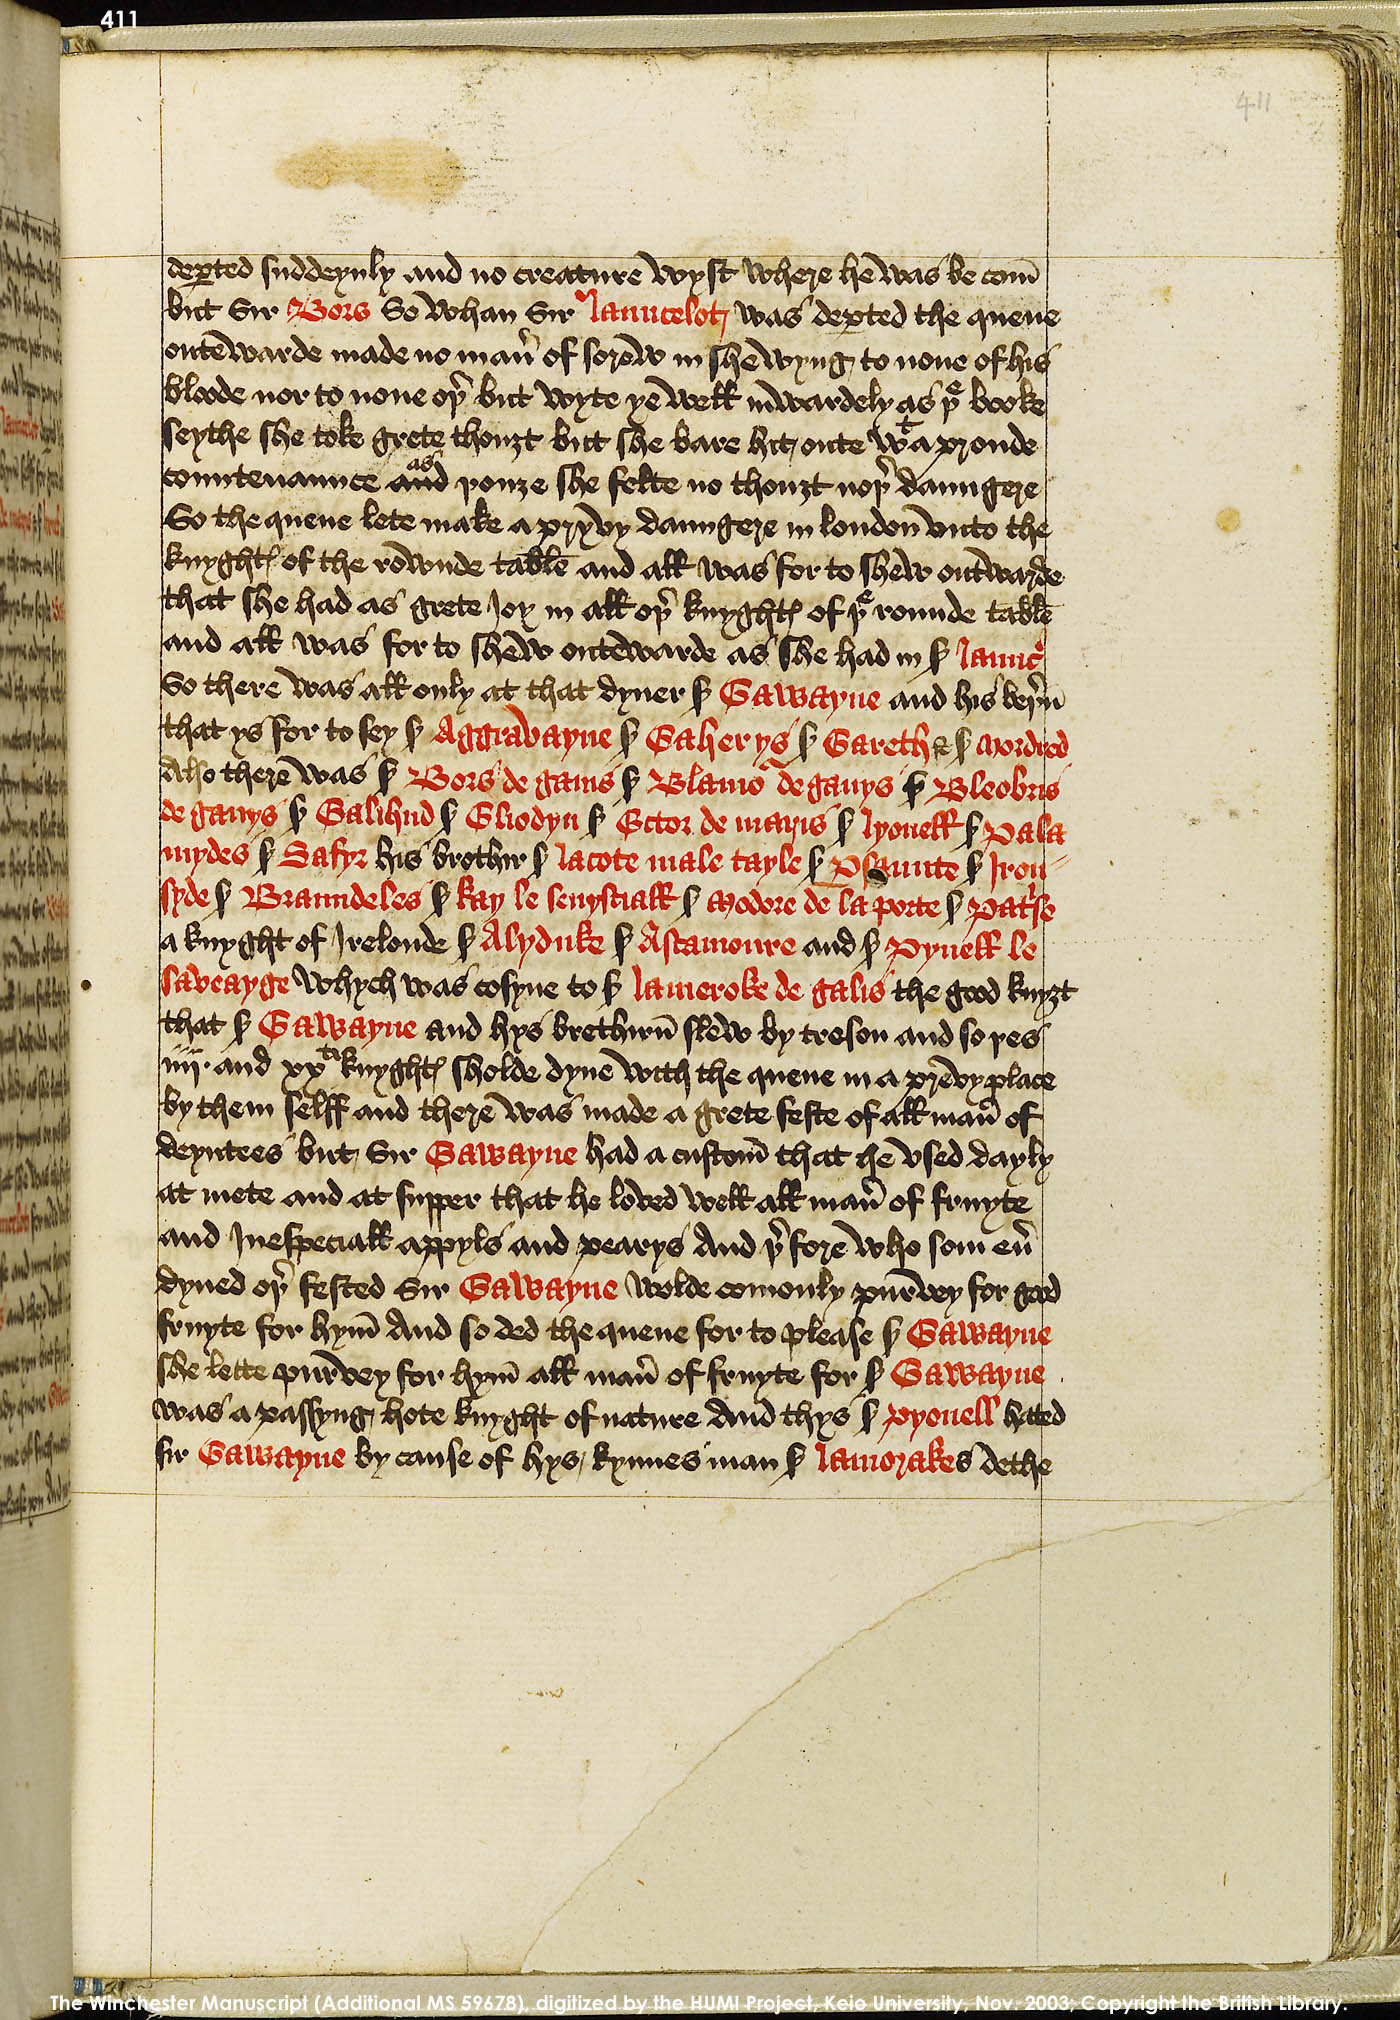 411
411
deꝑted suddeynly and no creature wyst where he was be com̄
but Sir Bors So whan Sir launcelot was deꝑted the quene
outewarde made no man̄ of sorow in shewyng to none of his
bloode nor to none oþ̄ but wyte ye well inwardely as þe booke
seythe she toke grete thouȝt but she bare hit oute wt a proude
countenaunce and as þouȝe she felte no thouȝt noþ̄ daungere
So the quene lete make a pryvy daungere in london̄ vnto the
knyghtꝭ of the rownde table and all was for to shew outwarde
that she had as grete Joy in all oþ̄ knyghtꝭ of þe rounde table
and all was for to shew outewarde as she had in ẜ launc̄
So there was all only at that dyner ẜ Gawayne and his breþ̄n
that ys for to sey ẜ Aggravayne ẜ Gaherys ẜ Gareth & ẜ Mordred
Also there was ẜ Bors de ganis ẜ Blamo͞ de ganys ẜ Bleobris
de ganys ẜ Galihud ẜ Eliodyn ẜ Ector de maris ẜ lyonell ẜ Pala
mydes ẜ Safyr his brothir ẜ lacote male tayle ẜ Psaunte ẜ Iron
syde ẜ Braundeles ẜ kay le senysciall ẜ Modore de la porte ẜ Patꝛse
a knyght of Irelonde ẜ Alyduke ẜ Astamoure and ẜ Pynell le
saveayge whych was cosyne to ẜ lameroke de galis the good knyȝt
that ẜ Gawayne and hys brethirn̄ slew by treson and so þes
iiij. and xxti knyghtꝭ sholde dyne with the quene in a prevy place
by them selff and there was made a grete feste of all man̄ of
deyntees but Sir Gawayne had a custom̄ that he vsed dayly
at mete and at supper that he loved well all man̄ of fruyte
and Inespeciall appyls and pearys And þ̄fore who som eū
dyned oþ̄ fested Sir Gawayne wolde comonly purvey for good
fruyte for hym̄ And so ded the quene for to please ẜ Gawayne
she lette purvey for hym̄ all man̄ of fruyte for ẜ Gawayne
was a passyng hote knyght of nature And thys ẜ pyonell hated
sir Gawayne by cause of hys kynnes man ẜ lamorakes dethe
The Winchester Manuscript (Additional MS 59678), digitized by the HUMI Project, Keio University, Nov. 2003; Copyright the British Library.